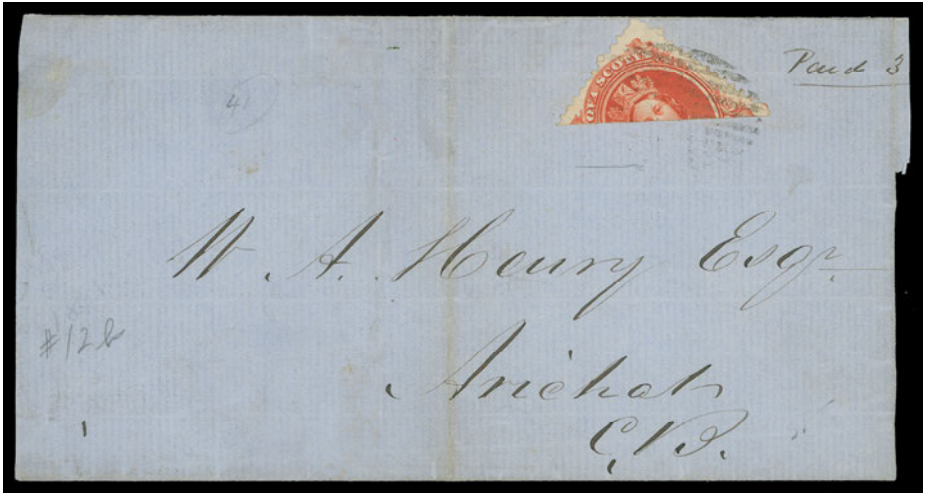 Paid 3
OVA SCOTI
4
W. A. Henry Esqr.
#12b
Arichat
C.B.